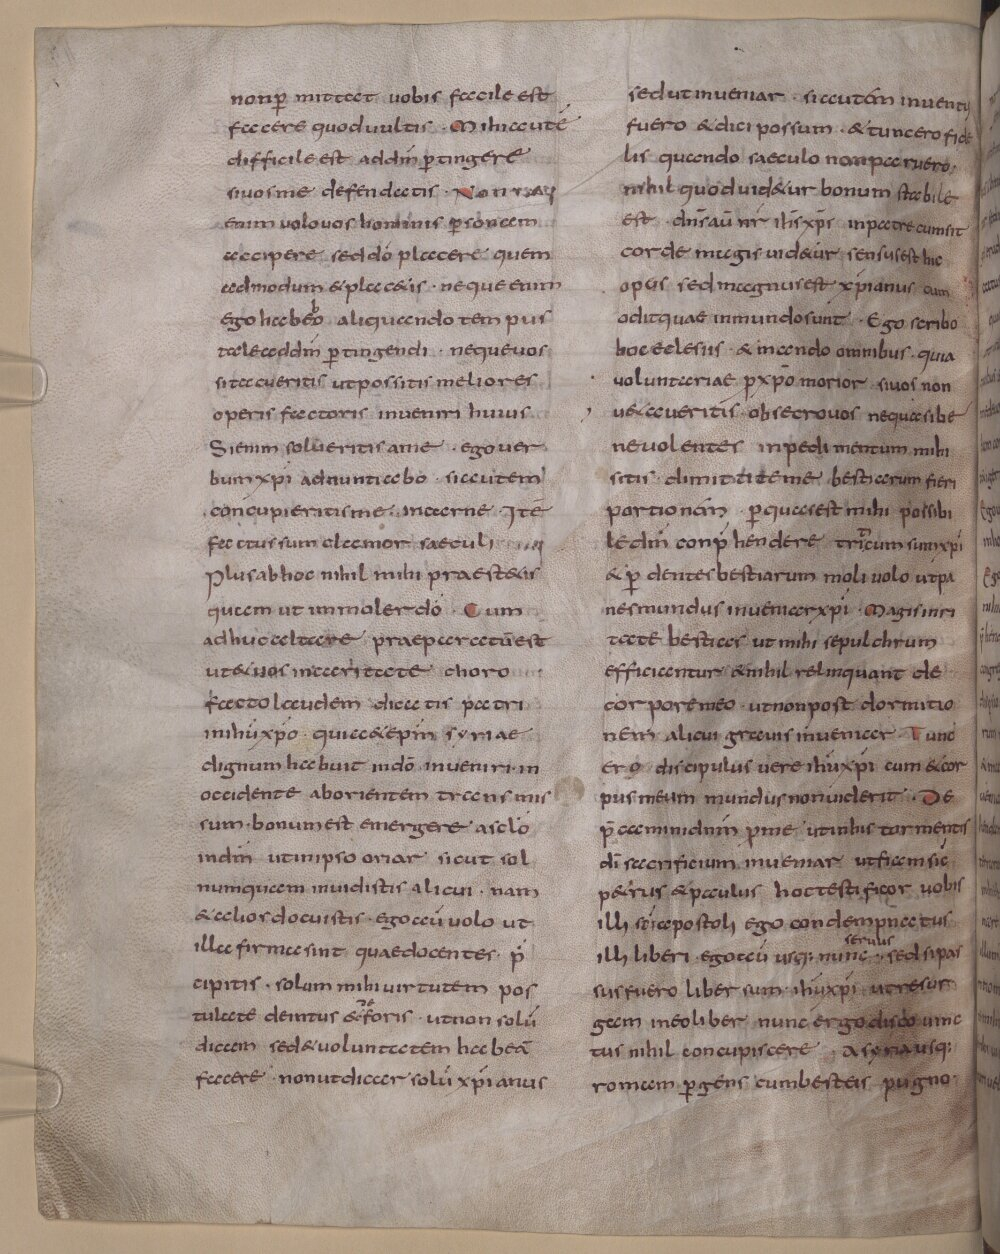 non p̄ mittat uobis facile est
facere quod uultis · Mihi auté
difficile est addm̄ ptingere
si uos me defendatis · Non
enim uolo uos hominis psonam
accipere sed dō placere quem
admodum & placetis · neque enim
ego habeo aliquando tempus
tale addm̄ ptingendi · neque uos
si tacueritis ut possitis melioris
operis factoris inueniri huius
Si enim solueritis a me · ego uer
bum xp̄i adnuntiabo · si autem
concupieritis me in carne · Ité
factus sum clamor saeculi
Plus ab hoc nihil mihi praestetis
quam ut immoler dō · Cum
adhuc altare praeparatū est
ut & uos in caritate choro
facto laudem dicatis patri
in ihū xp̄o · quia & ep̄m syriae
dignum habuit in dō inueniri · in
occidente ab orientem transmis
sum · bonum est emergere a sclo
in dm̄ ut in ipso oriar sicut sol
numquam inuidistis alicui · nam
& alios docuistis · ego aū uolo ut
illa firma sint quae docentes · p̄
cipitis · solum mihi uirtutem pos
tulate deintus & foris · ut non solū
dicam sed & uoluntatem habeā
facere · non ut dicar solū xp̄ianus
sed ut inueniar · si autem inuentus
fuero & dici possum · & tunc ero fide
lis quando saeculo non paruero ·
nihil quod uidetur bonum stabile
est · dn̄s aū nr̄ ih̄s xp̄s in patre cum sit
corde magis uidetur sensus est hic
opus sed magnus est xp̄ianus cum
odit quae in mundo sunt · Ego scribo
hoc eclesiis · & mando omnibus · quia
uoluntariae p xp̄o morior si uos non
uetaueritis · obsecro uos neque sibe
neuolentes inpedimentum mihi
sitis · dimittite me bestiarum fieri
portionem · per quas est mihi possibi
le dm̄ conp̄hendere triticum sum xp̄i
& p dentes bestiarum moli uolo ut pa
nes mundus inueniar xp̄i · Magis inri
tate bestias ut mihi sepulchrum
efficiantur & nihil relinquant de
corpore meo · ut non post dormitio
nem alicui grauis inueniar Tunc
ero discipulus uere ihū xp̄i cum & cor
pus meum mundus non uiderit · De
p̄camini dnm̄ p me ut in his tormentis
dī sacrificium inueniar ut ficam sic
petrus & paulus hoc testificor uobis
illi sci apostoli ego condempnatus
illi liberi · ego aū usq; nunc seruus · sed si pas
sus fuero liber sum · ihū xp̄i ut resur
gam in eo liber nunc ergo disco uinc
tus nihil concupiscere · A syria usq;
romam pergens cum besteis pugno ·